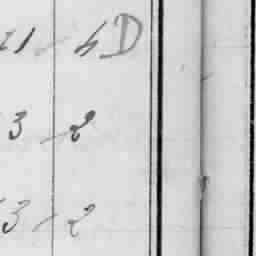 21 - 4 D
3 - 2
3 - 2